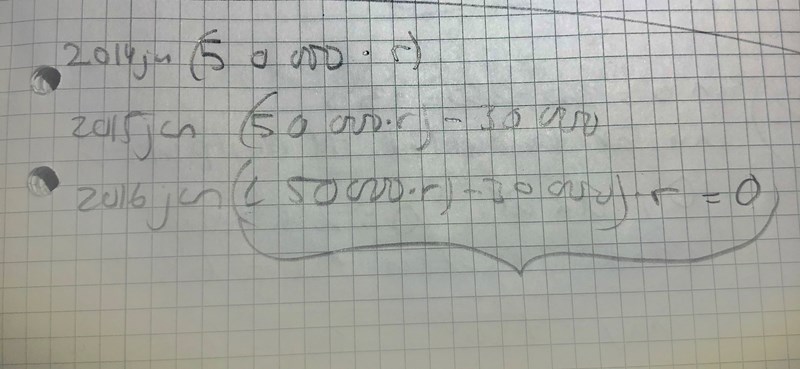 2014jn (50 000 · r)
2015jan (50 000·r) - 30 000
2016 jan ((50000·r)-30 000)·r = 0